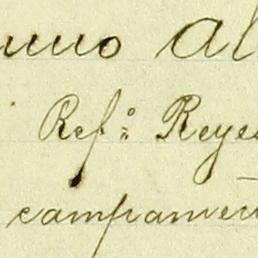 uno Al
Ref.º Reyes
campamen